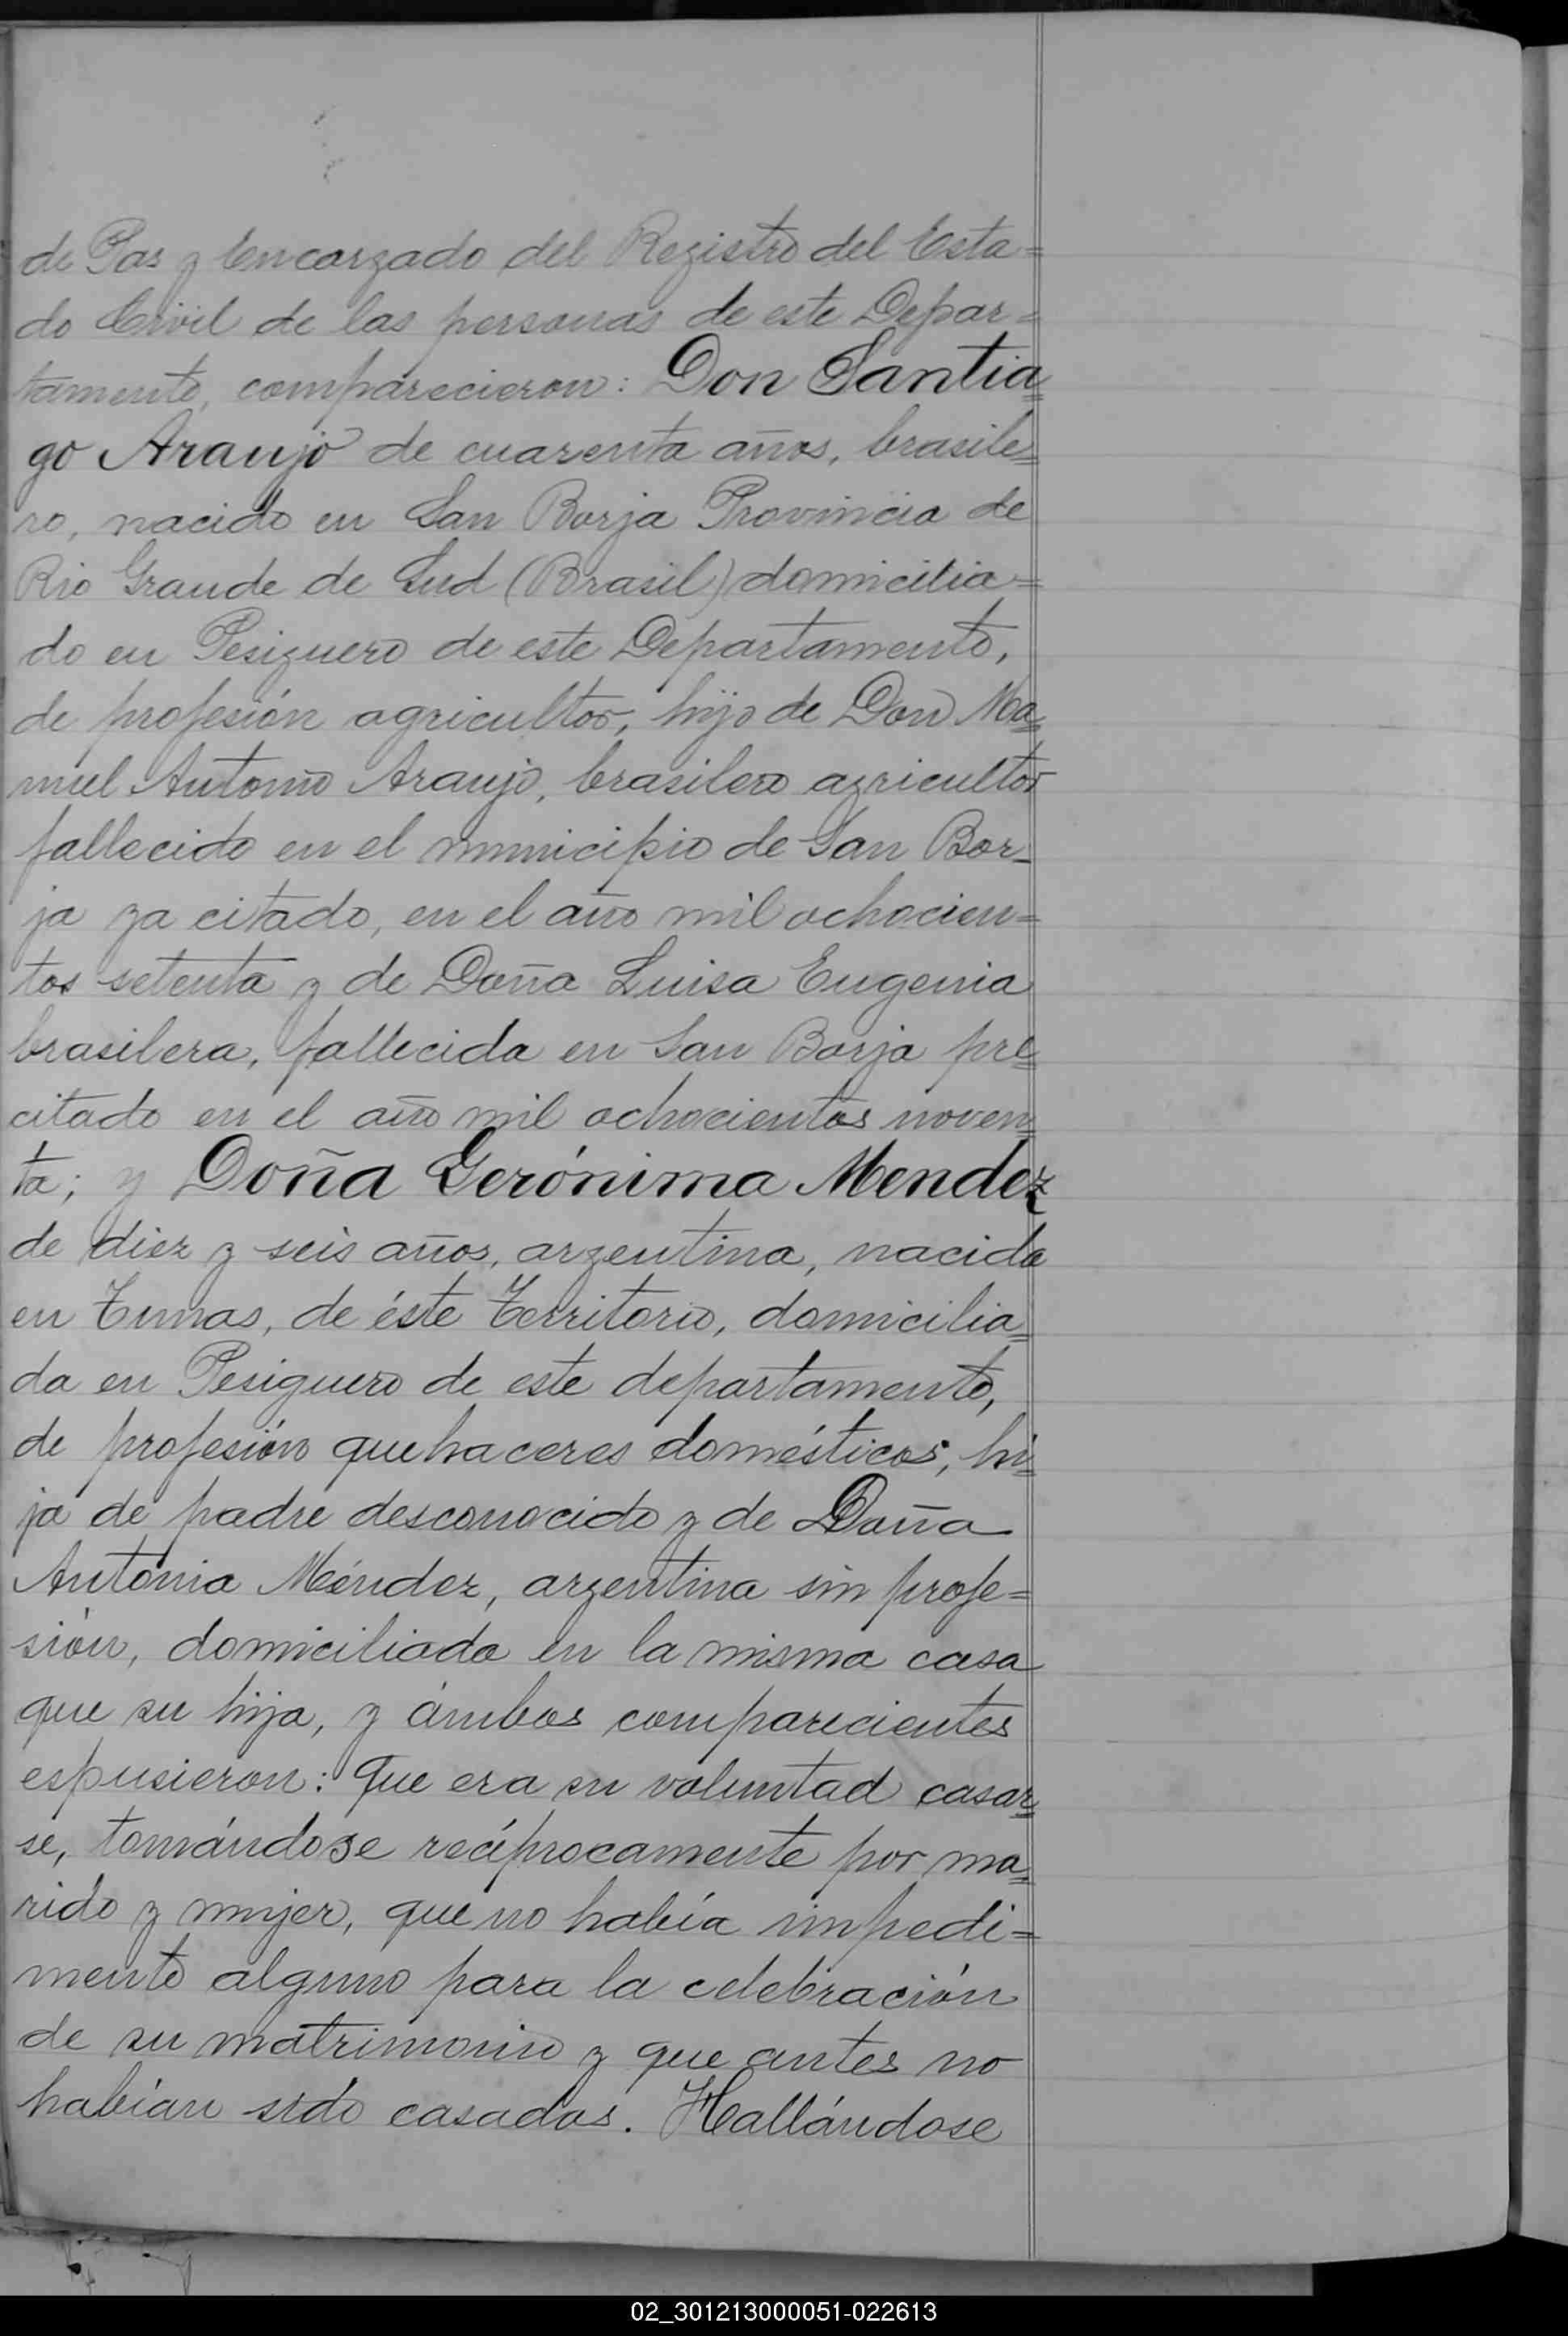 de Pas y Encargado del Registro del Esta=
do Civil de las personas de este Depar=
tamento, comparecieron: Don Santia=
go Araujo de cuarenta años, brasile=
ro, nacido en San Borja Provincia de
Rio Grande de Sud (Brasil) domicilia=
do en Pesiguero de este Departamento,
de profesión agricultor, hijo de Don Ma=
nuel Antonio Araujo, brasilero agricultor
fallecido en el municipio de San Bor=
ja ya citado, en el año mil ochocien=
tos setenta y de Doña Luisa Eugenia
brasilera, fallecida en San Borja pre=
citado en el año mil ochocientos noven=
ta; y Doña Gerónima Mendez
de diez y seis años, argentina, nacida
en Tunas, de éste Territorio, domicilia=
da en Pesiguero de este departamento,
de profesión quehaceres domésticos, hi=
ja de padre desconocido y de Doña
Antonia Méndez, argentina sin profe=
sión, domiciliada en la misma casa
que su hija, y ámbos comparecientes
espusieron: Que era su voluntad casar=
se, tomándose recíprocamente por ma=
rido y mujer, que no había impedi=
mento alguno para la celebración
de su matrimonio y que antes no
habían sido casados. Hallándose
02_301213000051-022613